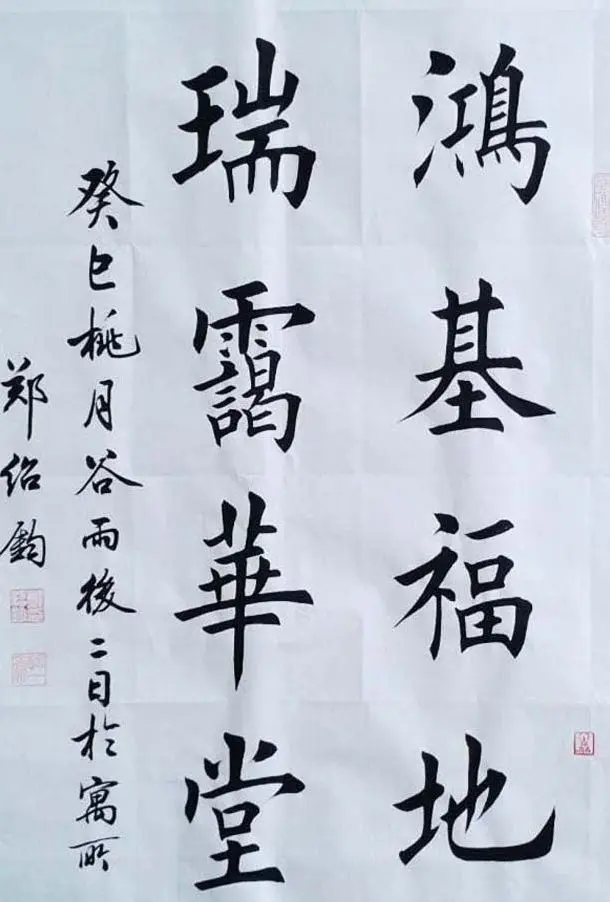 鴻基福地
瑞靄華堂
癸巳桃月谷雨後二日於寓所
郑绍鈞